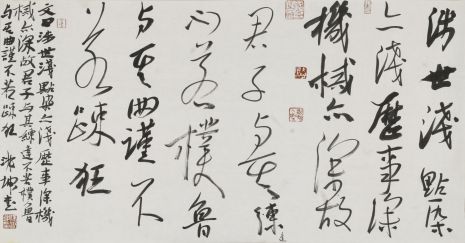 涉世淺點染
亦淺歷事深
機械亦深故
君子与其練達
不若樸魯
与其曲謹不
若疎狂
文曰涉世淺點染亦淺歷事深機
械亦深故君子与其練達不若樸魯
与其曲謹不若疎狂